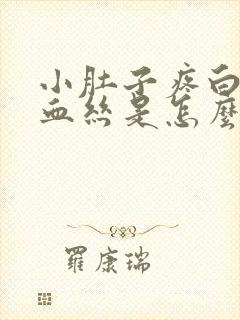 小肚子疼白
血丝是怎麽
羅康瑞